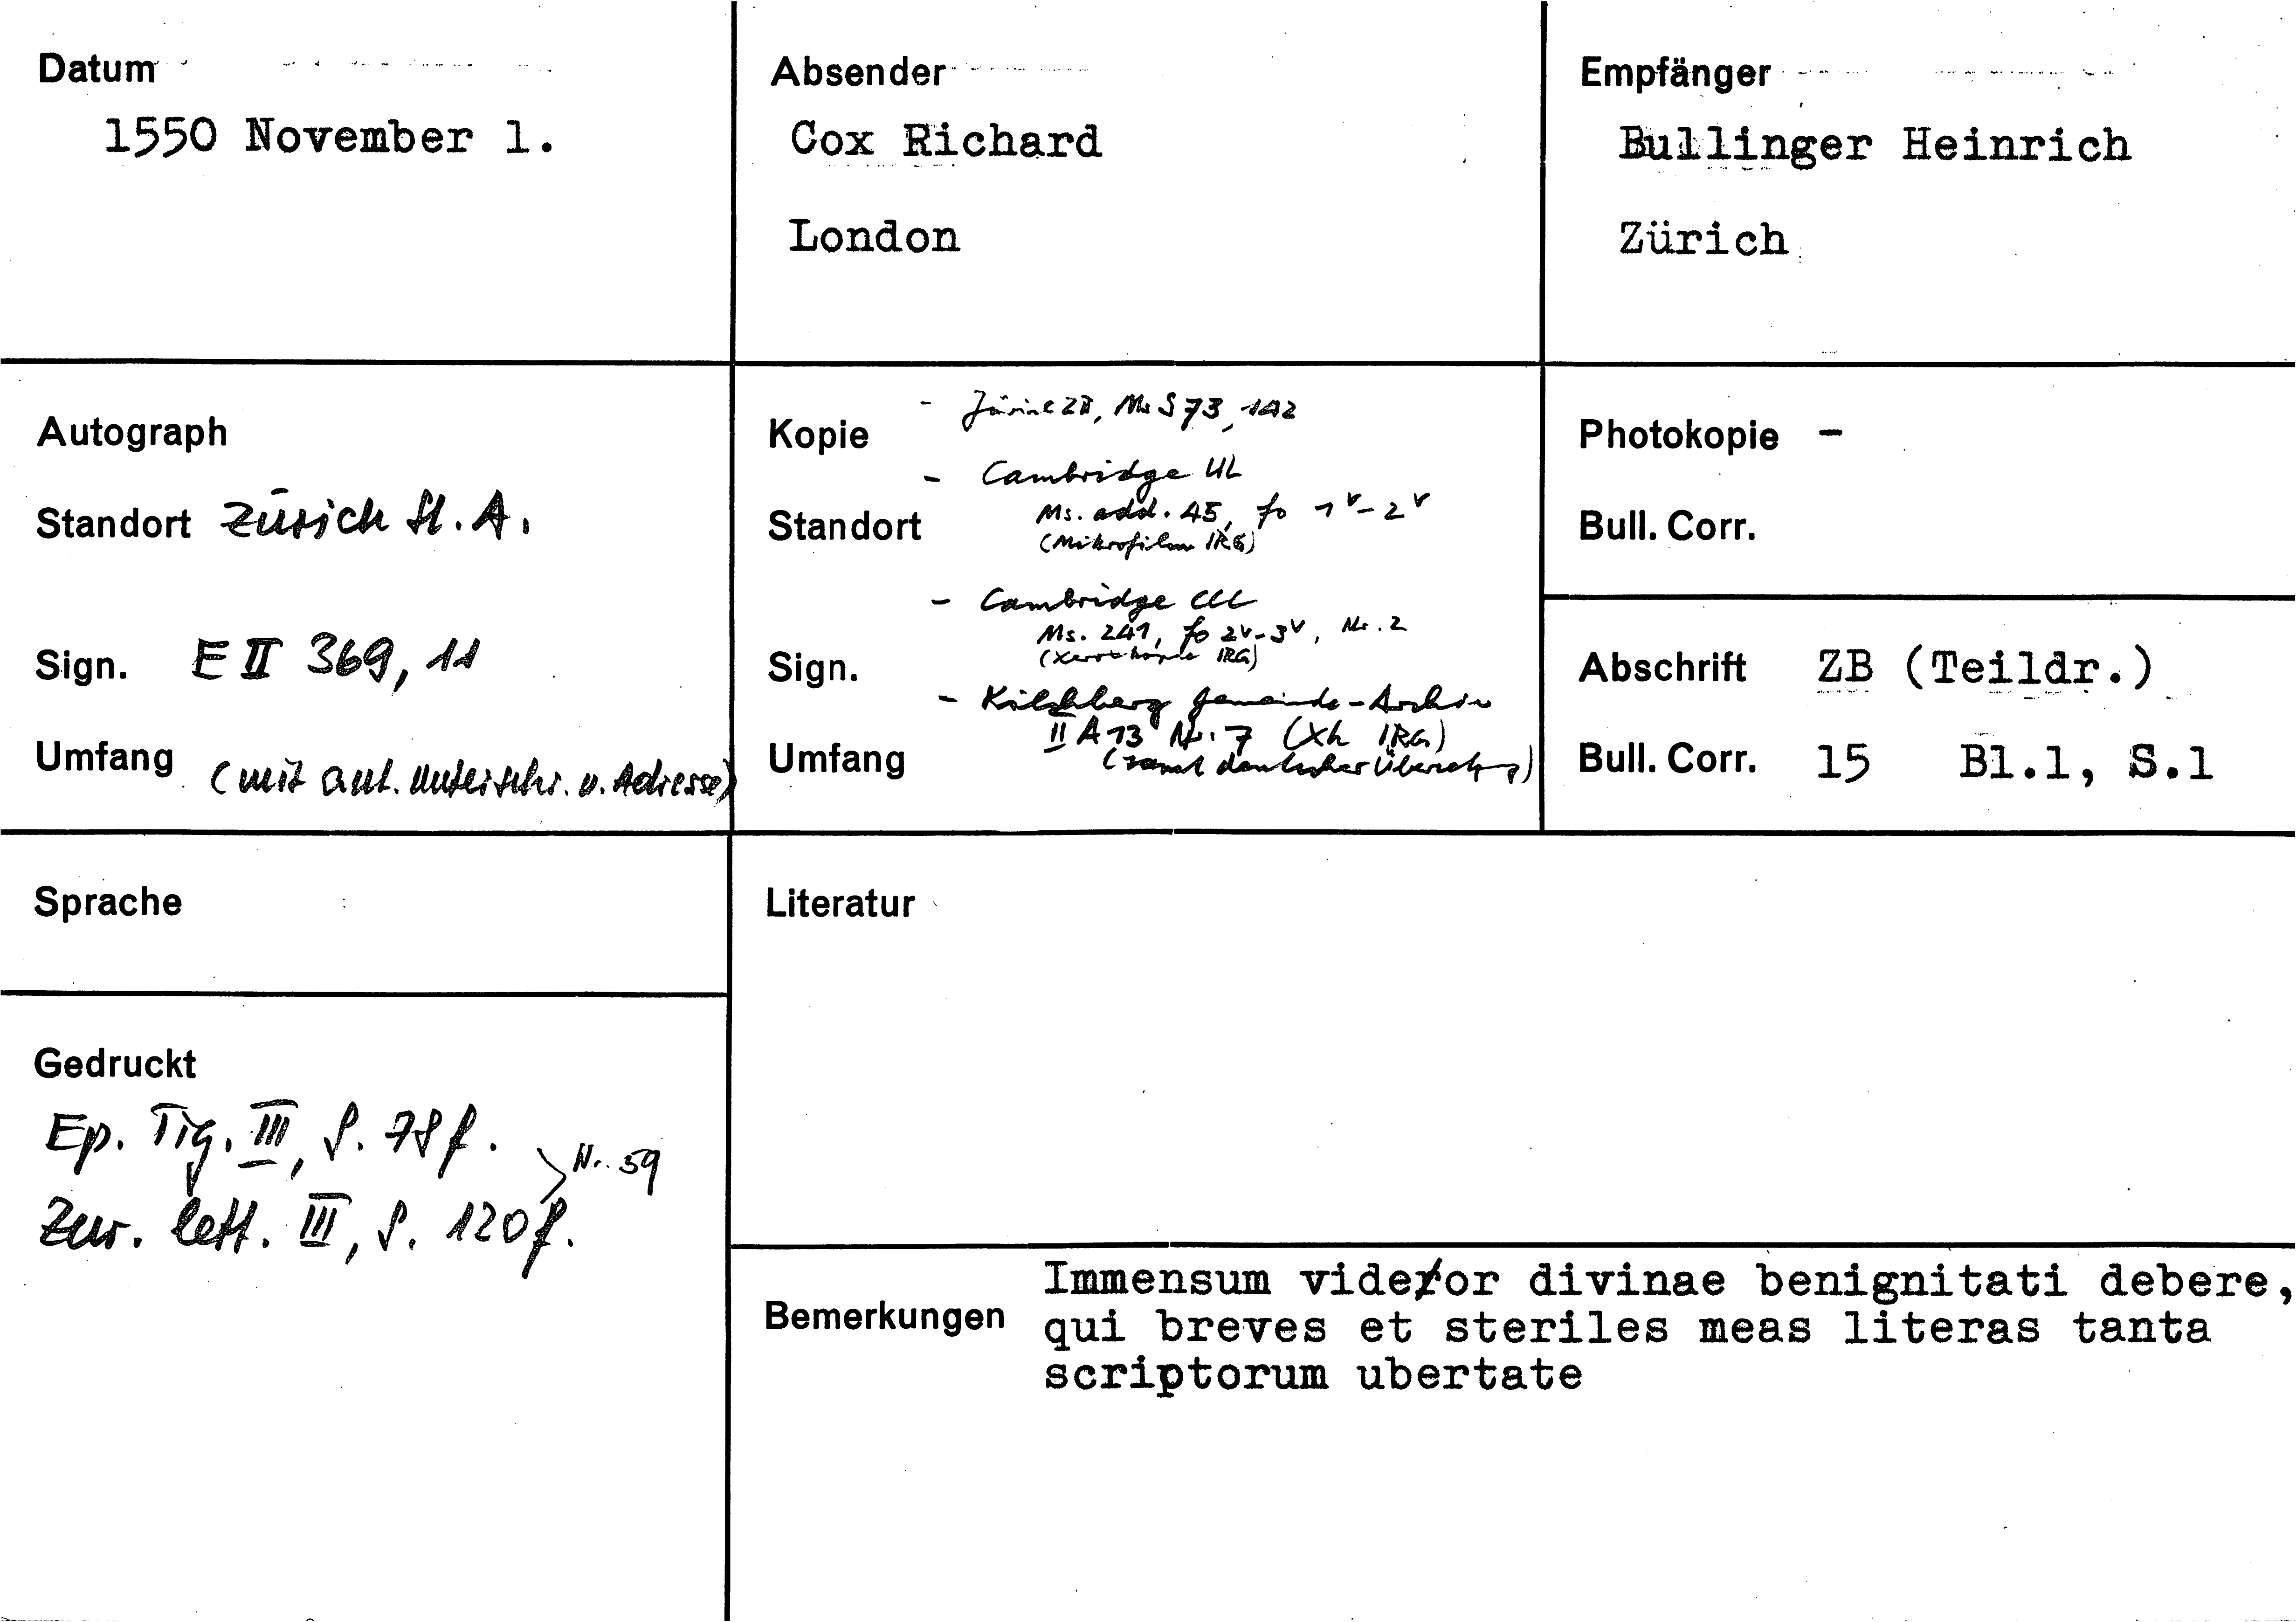 Datum
1550 November 1.
Absender
Cox Richard
London
Empfänger
Bullinger Heinrich
Zürich
Autograph
Standort Zürich St. A.
Sign. E II 369, 11
Umfang (mit aut. Unterschr. u. Adresse)
Kopie
- Zürich ZB, Ms S 73, 142
- Cambridge UL
Standort
Ms. add. 45, fo 1v-2v
(Mikrofilm IRG)
- Cambridge CCC
Ms. 241, fo 2v-3v, Nr. 2
Sign.
(Xerokopie IRG)
- Kilchberg Gemeinde-Archiv
II A 13 Nr. 7 (Xk IRG)
Umfang
(samt deutscher Übersetzung)
Photokopie -
Bull. Corr.
Abschrift ZB (Teildr.)
Bull. Corr. 15 Bl.1, S.1
Sprache
Literatur
Gedruckt
Ep. Tig. III, S. 78f.
Nr. 59
Zur. lett. III, S. 120f.
Bemerkungen
Immensum videor divinae benignitati debere,
qui breves et steriles meas literas tanta
scriptorum ubertate